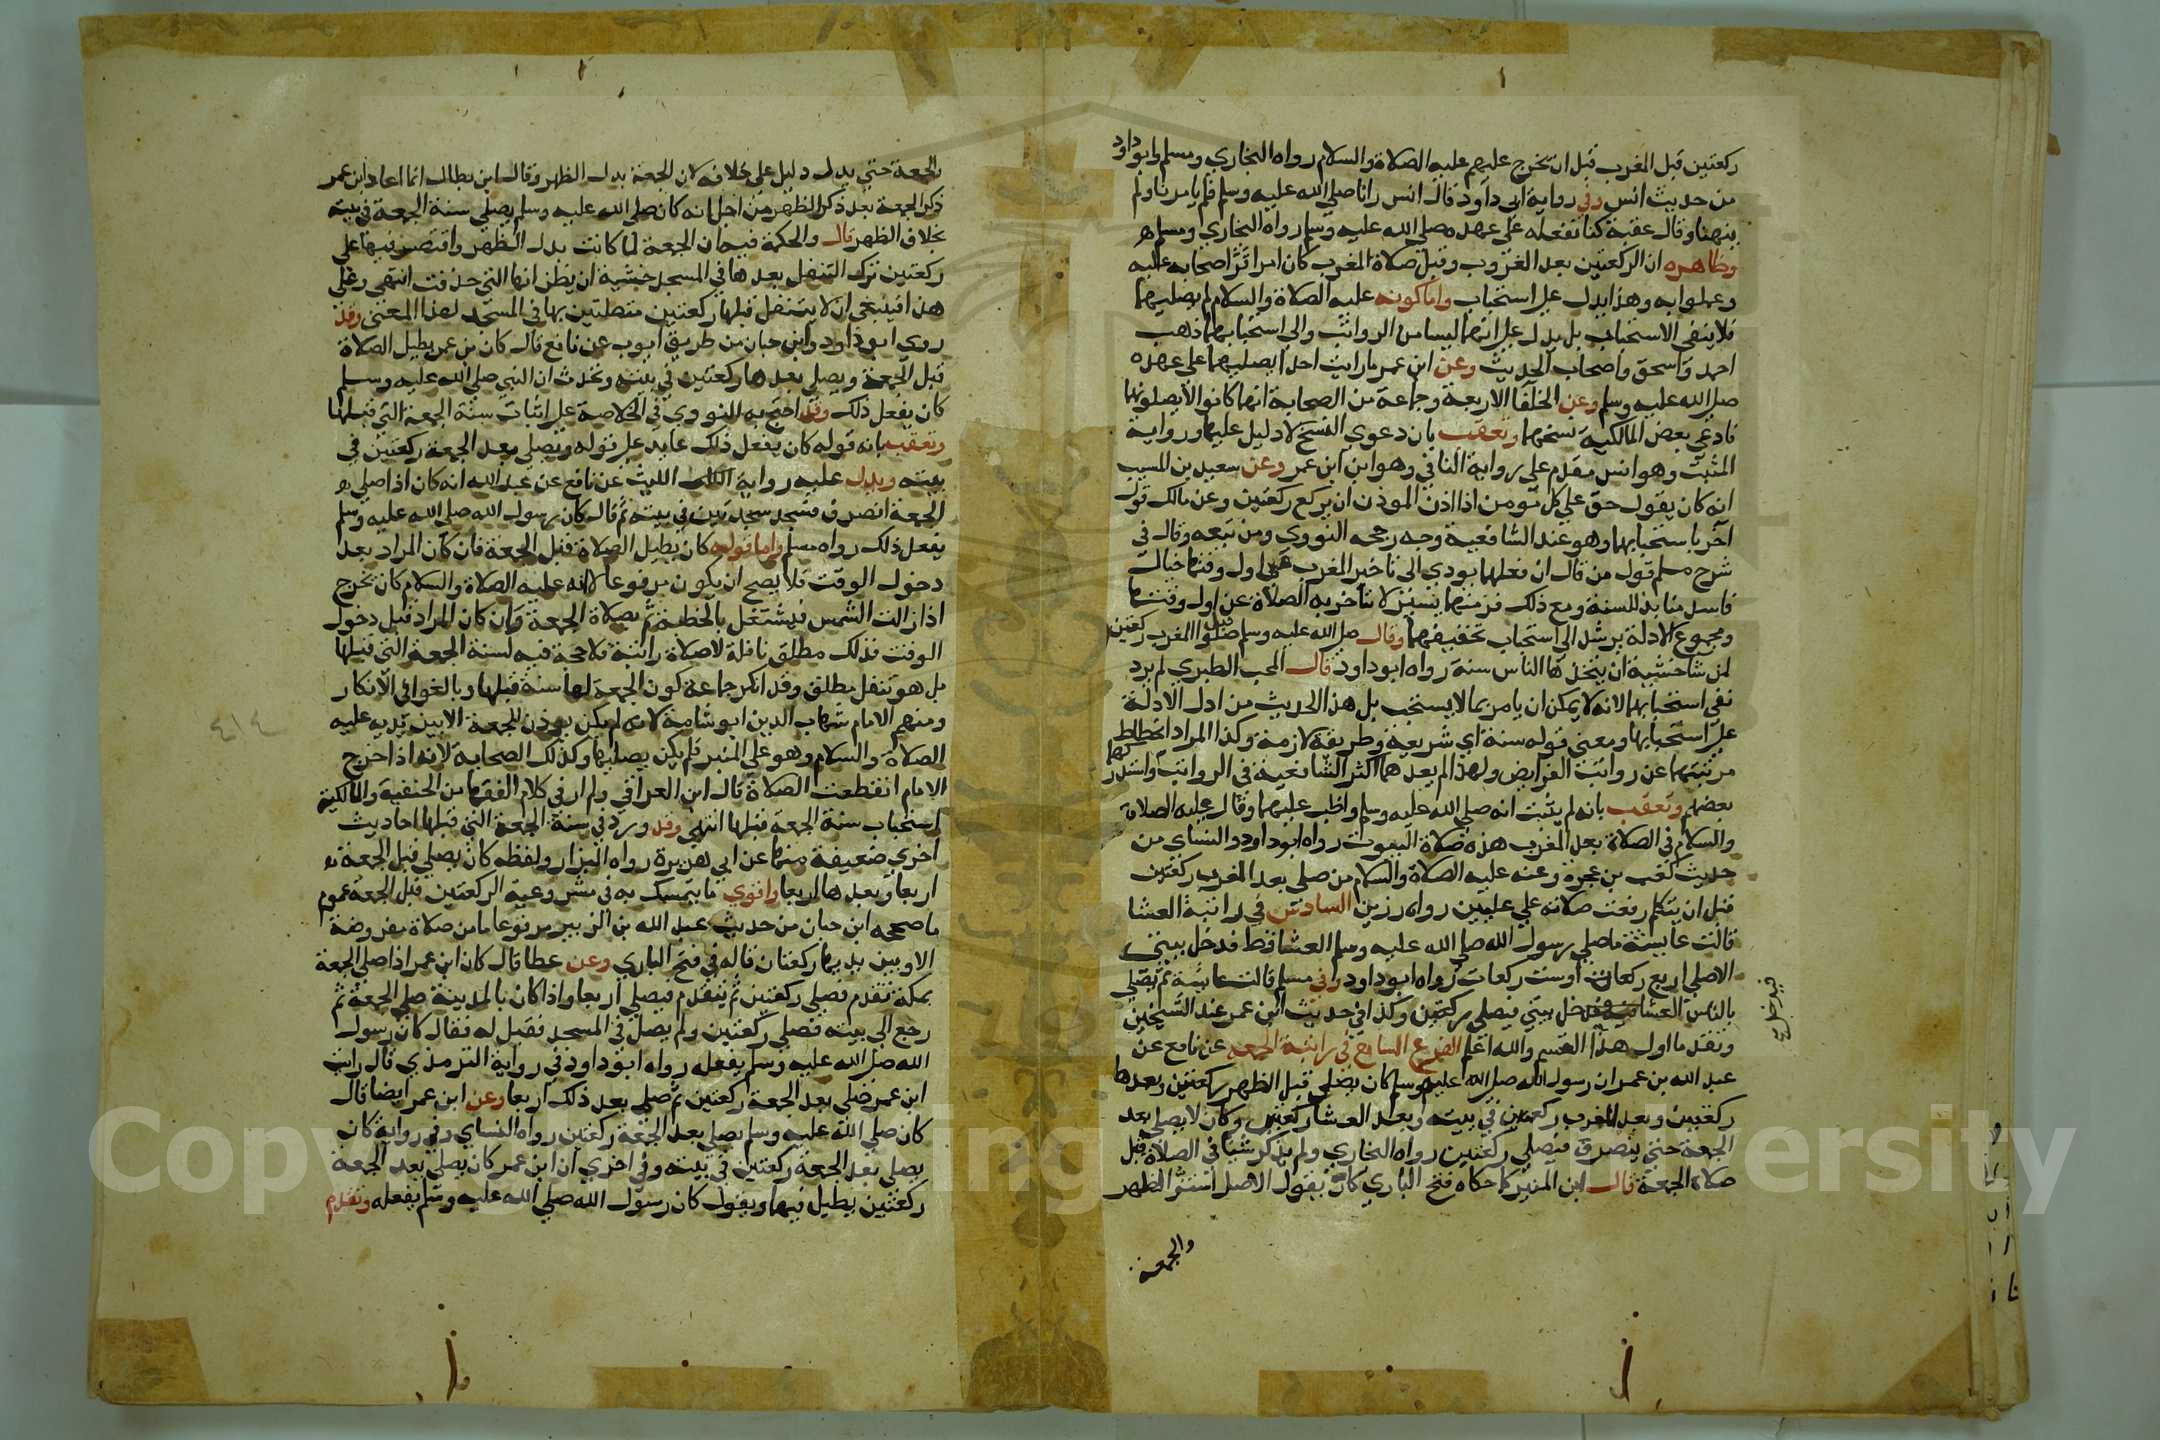 ركعتين قبل المغرب قبل ان يخرج عليهم عليه الصلاة والسلام رواه البخاري ومسلم وابو داود
من حديث انس وفي رواية ابي داود قال انس رانا صلي الله عليه وسلم فلم يامرنا ولم
ينهنا وقال عقبة كنا نفعله علي عهده صلي الله عليه وسلم رواه البخاري ومسلم
وظاهره ان الركعتين بعد الغروب وقبل صلاة المغرب كان امرا قرر اصحابه عليه
وعملوا به وهذا يدل علي استحباب واما كونه عليه الصلاة والسلام لم يصليهما
فلا ينفي الاستحباب بل يدل علي انهما ليسا من الرواتب والي استحبابهما ذهب
احمد واسحق واصحاب الحديث وعن ابن عمر ما رايت احدا يصليهما علي عهده
صلي الله عليه وسلم وعن الخلفا الاربعة وجماعة من الصحابة انهم كانوا لا يصلونها
فادعي بعض المالكية نسخهما وتعقب بان دعوي النسخ لا دليل عليها ورواية
المثبت وهو انس مقدم علي رواية النافي وهو ابن عمر وعن سعيد بن المسيب
انه كان يقول حق علي كل مومن اذا اذن الموذن ان يركع ركعتين وعن مالك قول
آخر باستحبابهما وهو عند الشافعية وجه رجحه النووي ومن تبعه وقال في
شرح مسلم قول من قال ان فعلهما يودي الي تاخير المغرب عن اول وقتها خيال
فاسد منابذ للسنة ومع ذلك فزمنهما يسير لا تتاخر به الصلاة عن اول وقتها
ومجموع الادلة يرشد الي استحباب تخفيفهما وقال صلي الله عليه وسلم صلوا قبل المغرب ركعتين
لمن شا خشية ان يتخذها الناس سنة رواه ابو داود قال المحب الطبري لم يرد
نفي استحبابهما لانه لا يمكن ان يامر بما لا يستحب بل هذا الحديث من ادل الادلة
علي استحبابها ومعني قوله سنة اي شريعة وطريقة لازمة وكذا المراد انحطاط
مرتبتهما عن رواتب الفرايض ولهذا لم يعدهما اكثر الشافعية في الرواتب واستدركهما
بعضهم وتعقب بانه لم يثبت انه صلي الله عليه وسلم واظب عليهما وقال عليه الصلاة
والسلام في الصلاة بعد المغرب هذه صلاة البيوت رواه ابو داود والنساي من
حديث كعب بن عجرة وعنه عليه الصلاة والسلام من صلي بعد المغرب ركعتين
قبل ان يتكلم رفعت صلاته علي عليين رواه رزين السادس في راتبة العشا
قالت عايشة ما صلي رسول الله صلي الله عليه وسلم العشا قط فدخل بيتي
الا صلي اربع ركعات او ست ركعات رواه ابو داود وفي مسلم قالت عايشة ثم يصلي
بالناس العشا ويدخل بيتي فيصلي ركعتين وكذا في حديث ابن عمر عند الشيخين
وتقدما اول هذا القسم والله اعلم الفرع السابع في راتبة الجمعه عن نافع عن
عبد الله بن عمر ان رسول الله صلي الله عليه وسلم كان يصلي قبل الظهر ركعتين وبعدها
ركعتين وبعد المغرب ركعتين في بيته وبعد العشا ركعتين وكان لا يصلي بعد
الجمعة حتي ينصرف فيصلي ركعتين رواه البخاري ولم يذكر شيا في الصلاة قبل
صلاة الجمعة قال ابن المنير كما حكاه فتح الباري كانه يقول الاصل استوا الظهر
والجمعة
والجمعة حتي يدل دليل علي خلافه لان الجمعة بدل الظهر وقال ابن بطال انما اعاد ابن عمر
ذكر الجمعة بعد ذكر الظهر من اجل انه كان صلي الله عليه وسلم يصلي سنة الجمعة في بيته
بخلاف الظهر قال والحكمة فيه ان الجمعة لما كانت بدل الظهر واقتصر فيها علي
ركعتين ترك التنفل بعدها في المسجد خشية ان يظن انها التي حذفت انتهي وعلي
هذا فينبغي ان لا يتنفل قبلها ركعتين متصلتين بها في المسجد لهذا المعني وقد
روي ابو داود وابن حبان من طريق ايوب عن نافع قال كان بن عمر يطيل الصلاة
قبل الجمعة ويصلي بعدها ركعتين في بيته ويحدث ان النبي صلي الله عليه وسلم
كان يفعل ذلك وقد احتج به النووي في الخلاصة علي اثبات سنة الجمعة التي قبلها
وتعقب بانه قوله كان يفعل ذلك عايد علي قوله ويصلي بعد الجمعة ركعتين في
بيته ويدل عليه رواية الليث عن نافع عن عبد الله انه كان اذا صلي
الجمعة انصرف فسجد سجدتين في بيته ثم قال كان رسول الله صلي الله عليه وسلم
يفعل ذلك رواه مسلم واما قوله كان يطيل الصلاة قبل الجمعة فان كان المراد بعد
دخول الوقت فلا يصح ان يكون مرفوعا لانه عليه الصلاة والسلام كان يخرج
اذا زالت الشمس فيشتغل بالخطبة ثم بصلاة الجمعة وان كان المراد قبل دخول
الوقت فذلك مطلق نافلة لا صلاة راتبة فلا حجة فيه لسنة الجمعة التي قبلها
بل هو تنفل مطلق وقد انكر جماعة كون الجمعة لها سنة قبلها وبالغوا في الانكار
ومنهم الامام شهاب الدين ابو شامة لانه لم يكن يوذن للجمعة الا بين يديه عليه
الصلاة والسلام وهو علي المنبر فلم يكن يصليها وكذلك الصحابة لانه اذا خرج
الامام انقطعت الصلاة قال ابن العراقي ولم ار في كلام الفقها من الحنفية والمالكية
استحباب سنة الجمعة قبلها انتهي وقد ورد في سنة الجمعة التي قبلها احاديث
اخري ضعيفة منها عن ابي هريرة رواه البزار ولفظه كان يصلي قبل الجمعة
اربعا وبعدها اربعا واقوي ما يتمسك به في مشروعية الركعتين قبل الجمعة عموم
ما صححه ابن حبان من حديث عبد الله بن الزبير مرفوعا ما من صلاة مفروضة
الا وبين يديها ركعتان قاله في فتح الباري وعن عطا قال كان ابن عمر اذا صلي الجمعة
بمكة تقدم فصلي ركعتين ثم يتقدم فيصلي اربعا واذا كان بالمدينة صلي الجمعة ثم
رجع الي بيته فصلي ركعتين ولم يصل في المسجد فقيل له فقال كان رسول
الله صلي الله عليه وسلم يفعله رواه ابو داود وفي رواية الترمذي قال رايت
ابن عمر صلي بعد الجمعة ركعتين ثم صلي بعد ذلك اربعا وعن ابن عمر ايضا قال
كان صلي الله عليه وسلم يصلي بعد الجمعة ركعتين رواه النساي وفي رواية كان
يصلي بعد الجمعة ركعتين في بيته وفي اخري ان ابن عمر كان يصلي بعد الجمعة
ركعتين يطيل فيهما ويقول كان رسول الله صلي الله عليه وسلم يفعله وتقدم
٤١٤
Copyright © King Saud University